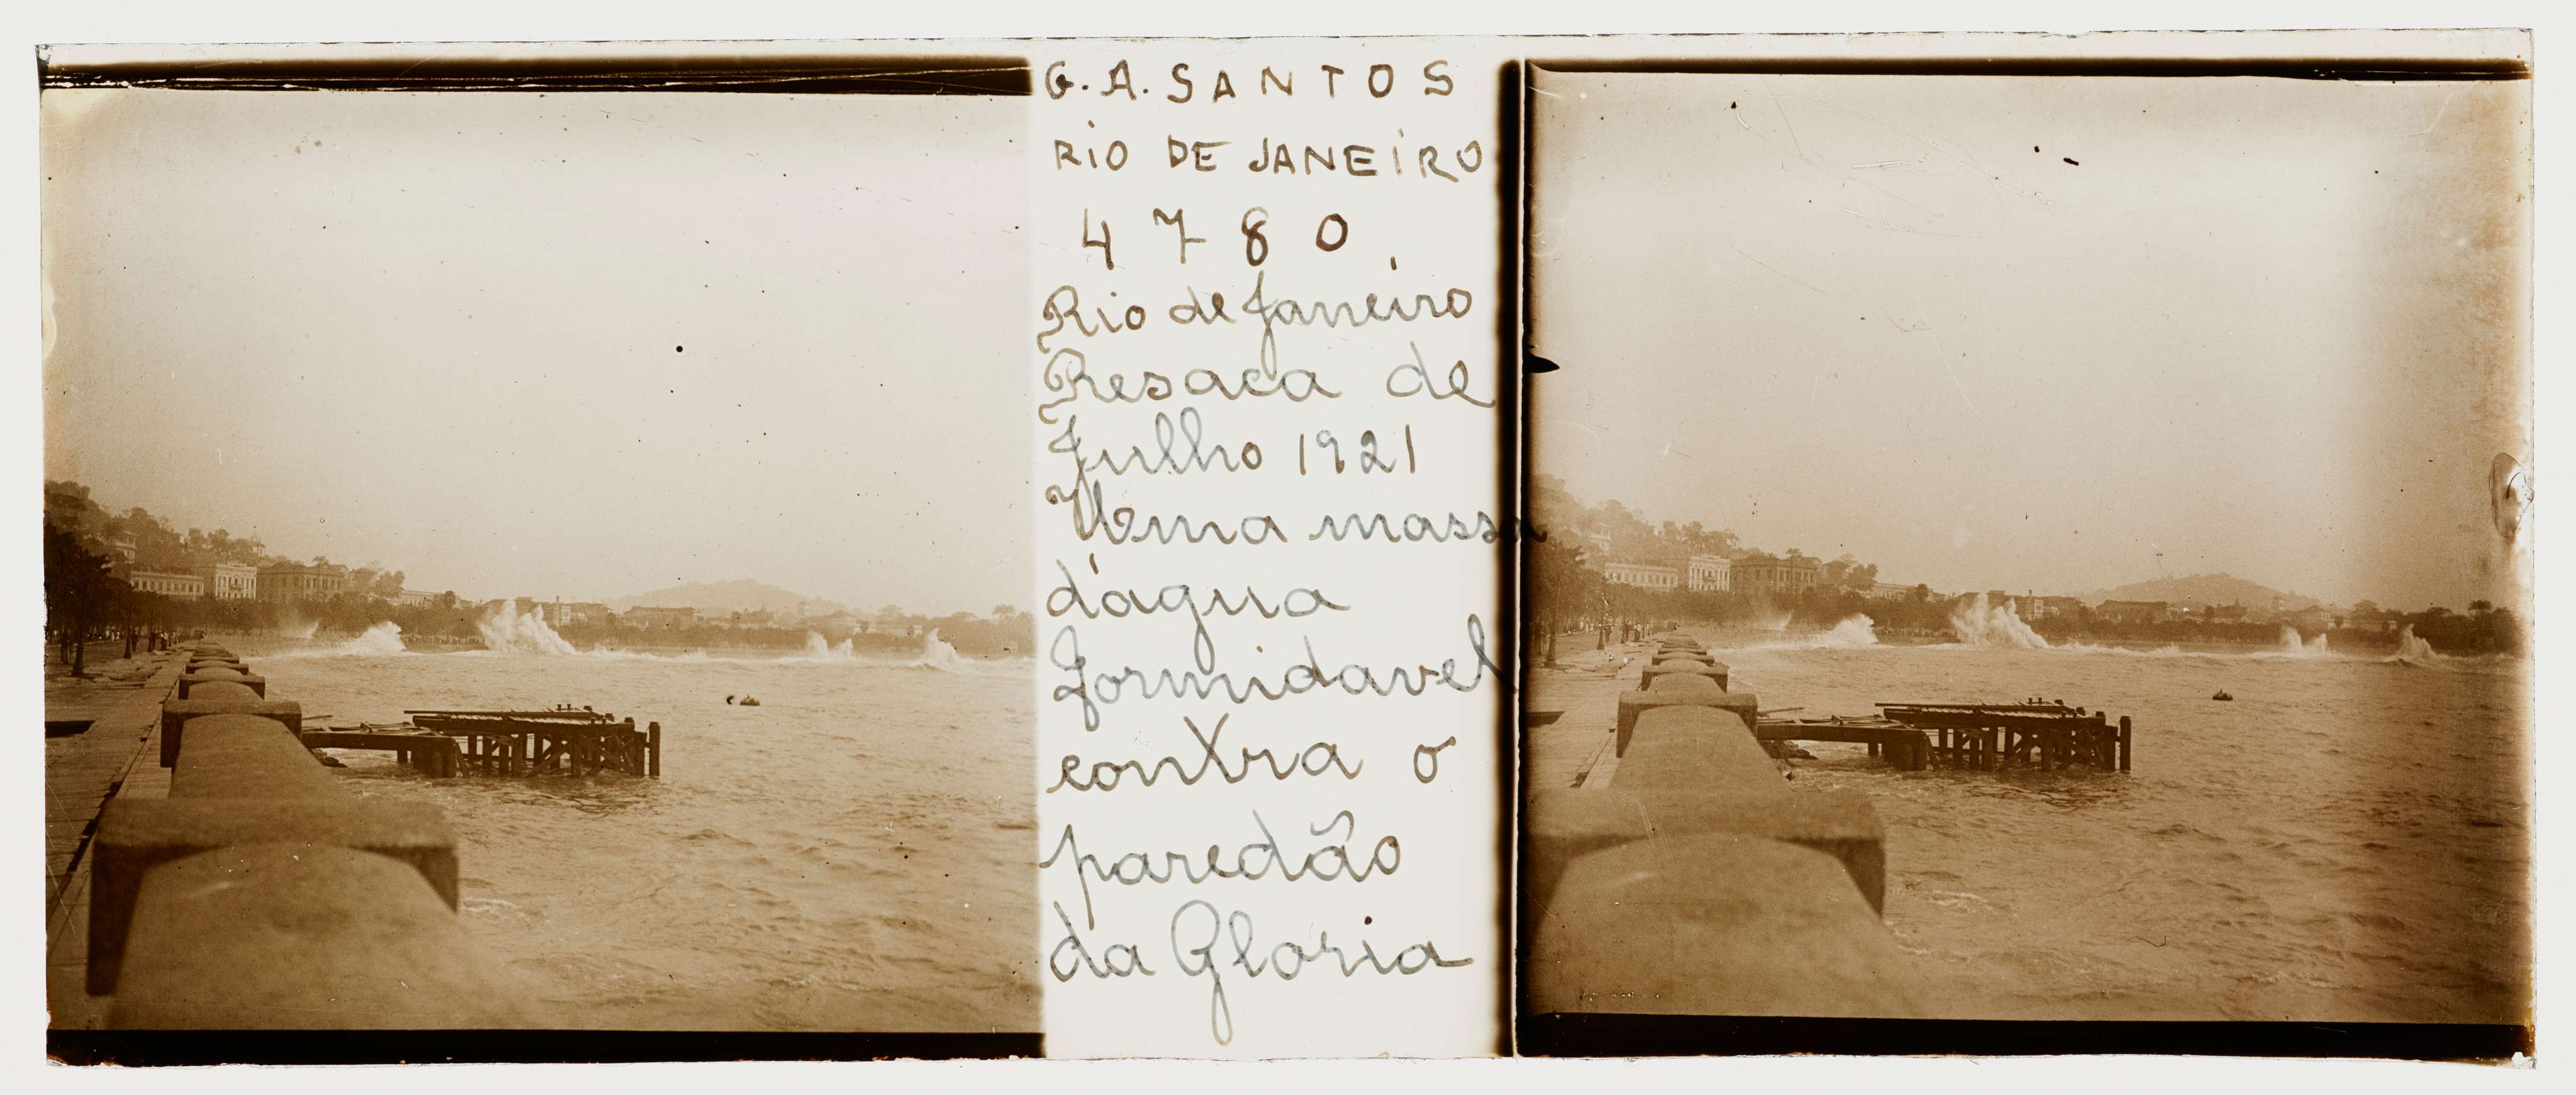 G. A. SANTOS
RIO DE JANEIRO
4780
Rio de Janeiro
Resaca de
Julho 1921
Uma massa
d'agua
formidavel
contra o
paredão
da Gloria